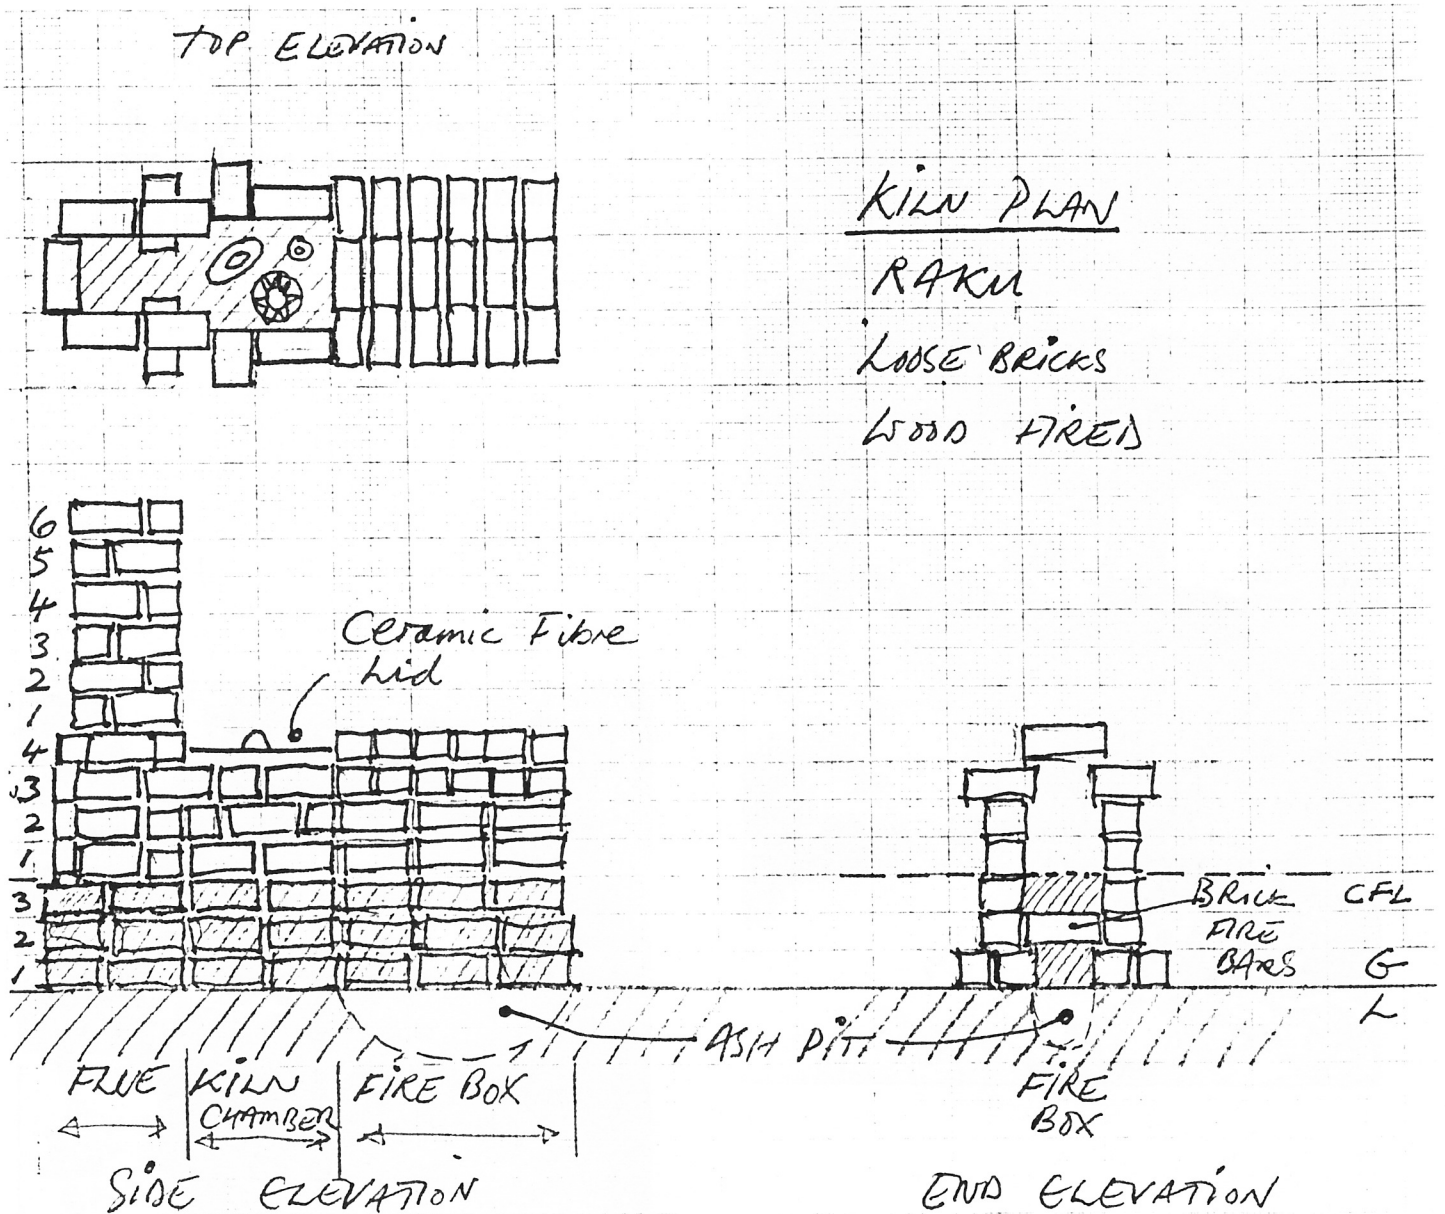 TOP ELEVATION
KILN PLAN
RAKU
LOOSE BRICKS
WOOD FIRED
6
5
4
3
2
1
4
3
2
1
3
2
1
Ceramic Fibre
Lid
BRICK
FIRE
BARS
CFL
G
L
ASH PIT
FLUE
KILN
CHAMBER
FIRE BOX
SIDE ELEVATION
FIRE
BOX
END ELEVATION